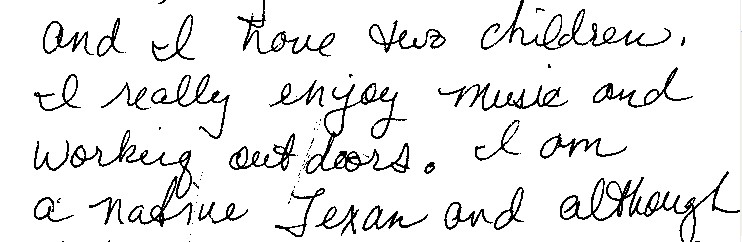 and I have two children.
I really enjoy music and
working outdoors. I am
a native Texan and although